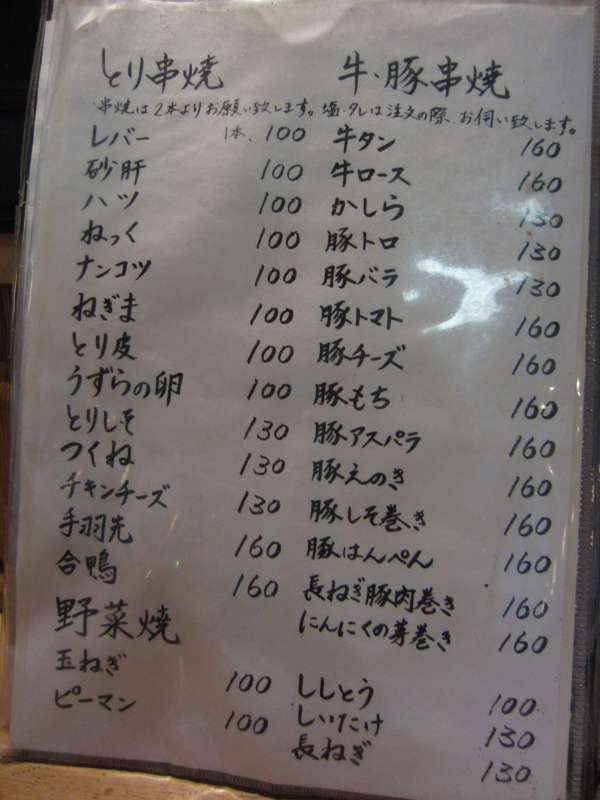 とり串焼
牛、豚串焼
・串焼は2本よりお願い致します。塩・タレは注文の際、お伺い致します。
レバー 1本、100
砂肝 100
ハツ 100
ねっく 100
ナンコツ 100
ねぎま 100
とり皮 100
うずらの卵 100
とりしそ 130
つくね 130
チキンチーズ 130
手羽先 160
合鴨 160
牛タン 160
牛ロース 160
かしら 130
豚トロ 130
豚バラ 130
豚トマト 160
豚チーズ 160
豚もち 160
豚アスパラ 160
豚えのき 160
豚しそ巻き 160
豚はんぺん 160
長ねぎ豚肉巻き 160
にんにくの芽巻き 160
野菜焼
玉ねぎ 100
ピーマン 100
ししとう 100
しいたけ 130
長ねぎ 130